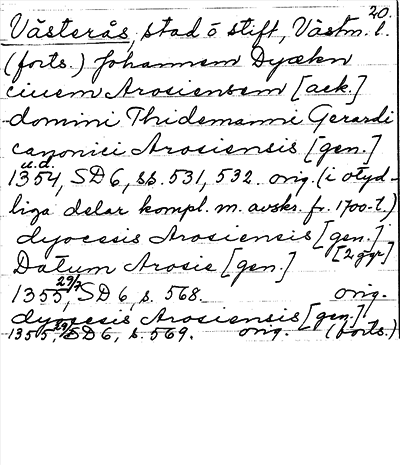 20.
Västerås, stad o stift, Västm. l.
(forts.) Johannem Dyækn
ciuem Arosiensem [ack.]
domini Thidemanni Gerardi
canonici Arosiensis [gen.]
u.d.
1354, SD 6, ss. 531, 532. orig. (i otyd-
liga delar kompl. m. avskr. fr. 1700-t.)
dyocesis Arosiensis [gen.]
[2 ggr]
Datum Arosie [gen.]
1355 29/7, SD 6, s. 568. orig.
dyocesis Arosiensis [gen.]
1355 29/9, SD 6, s. 569. orig. (forts.)